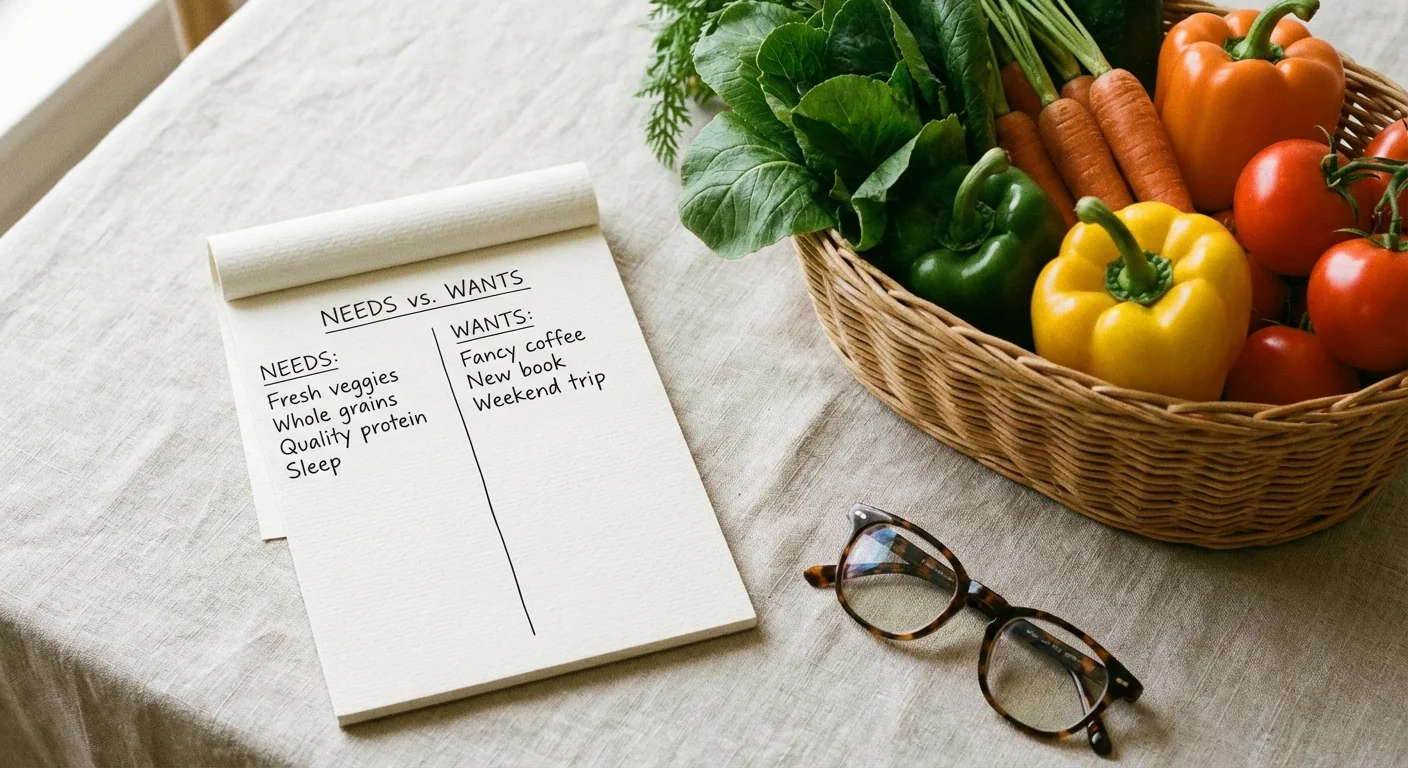 NEEDS vs. WANTS
NEEDS:
Fresh veggies
Whole grains
Quality protein
Sleep
WANTS:
Fancy coffee
New book
Weekend trip